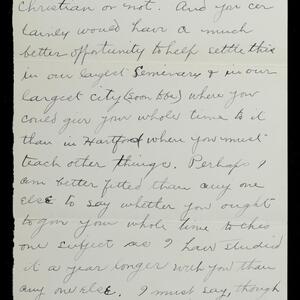 Christian or not. And you cer
tainly would have a much
better opportunity to help settle this
in our largest Seminary & in our
largest city (soon to be) where you
could give your whole time to it
than in Hartford where you must
teach other things. Perhaps I
am better fitted than any one
else to say whether you ought
to give your whole time to this
one subject as I have studied
it a year longer with you than
any one else. I must say, though